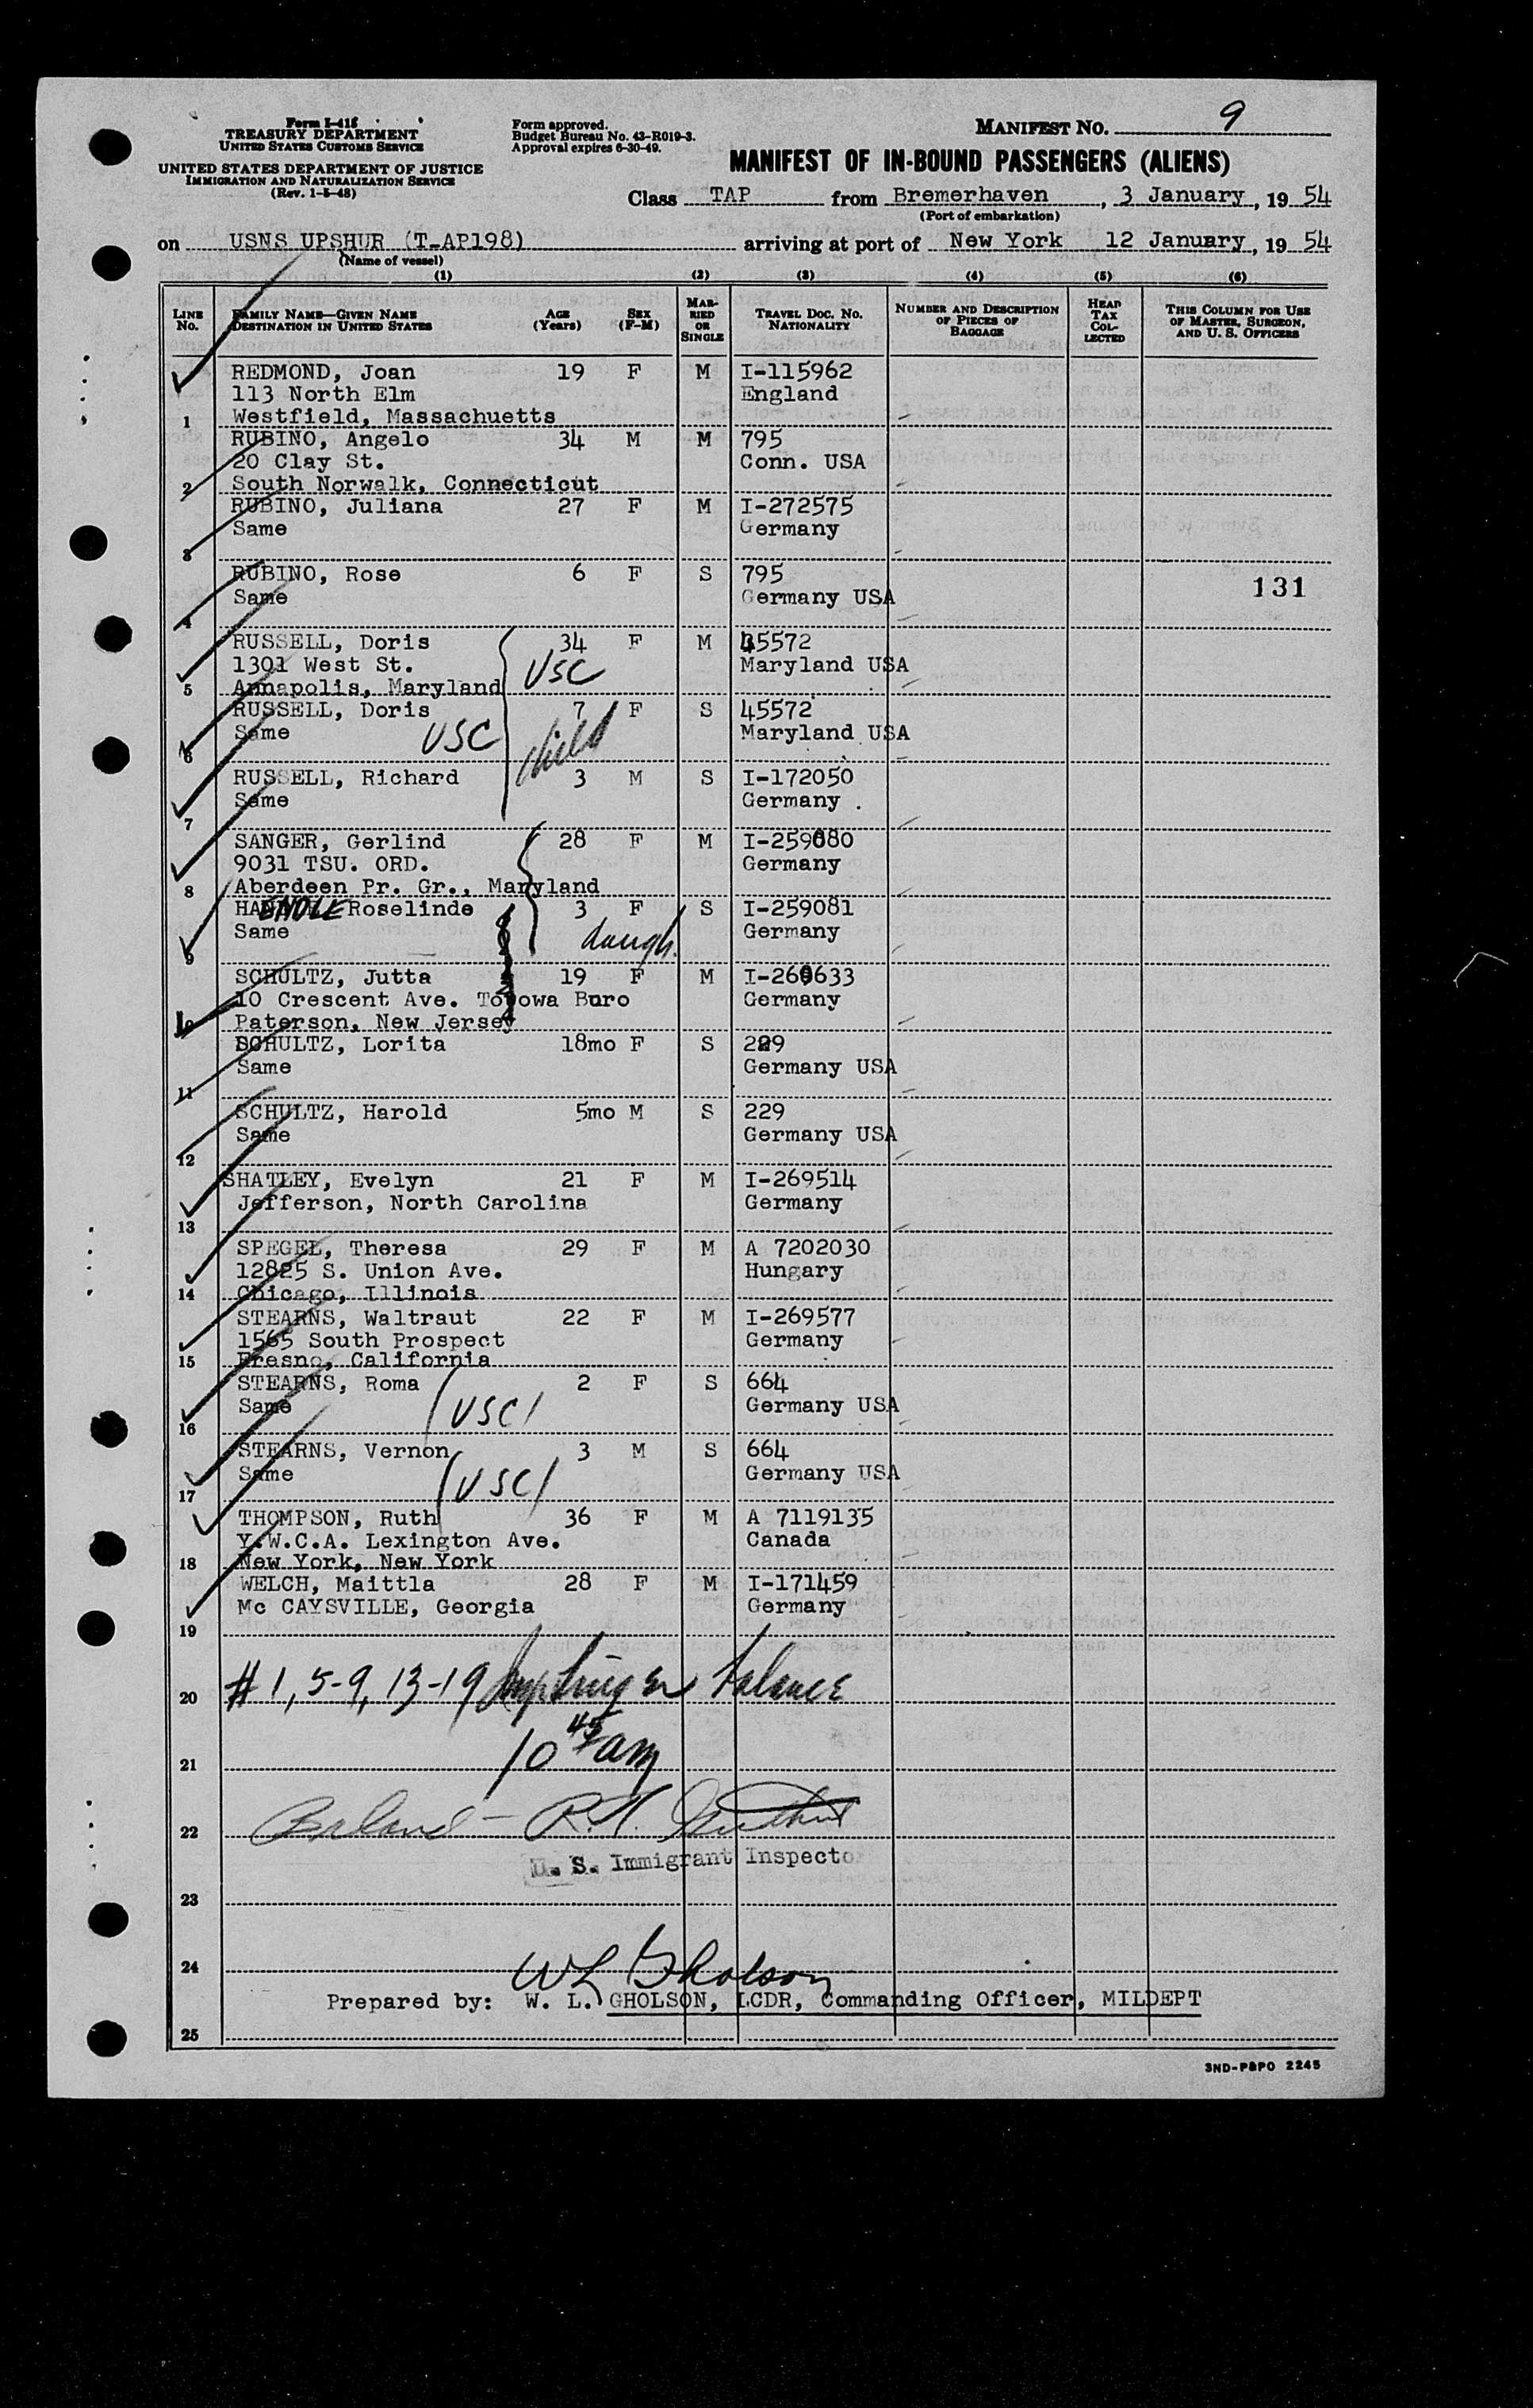 Form I-415
TREASURY DEPARTMENT
UNITED STATES CUSTOMS SERVICE
UNITED STATES DEPARTMENT OF JUSTICE
IMMIGRATION AND NATURALIZATION SERVICE
(Rev. 1-5-48)
Form approved.
Budget Bureau No. 43-R019-3.
Approval expires 6-30-49.
MANIFEST NO. 9
MANIFEST OF IN-BOUND PASSENGERS (ALIENS)
Class TAP from Bremerhaven, 3 January, 19 54
(Port of embarkation)
on USNS UPSHUR (T-AP198) arriving at port of New York 12 January, 19 54
(Name of vessel)
(1) (2) (3) (4) (5) (6)
LINE No. FAMILY NAME—GIVEN NAME DESTINATION IN UNITED STATES AGE (Years) SEX (F-M) MARRIED OR SINGLE TRAVEL DOC. NO. NATIONALITY NUMBER AND DESCRIPTION OF PIECES OF BAGGAGE HEAD TAX COLLECTED THIS COLUMN FOR USE OF MASTER, SURGEON, AND U. S. OFFICERS
REDMOND, Joan 19 F M I-115962
113 North Elm England
1 Westfield, Massachuetts
RUBINO, Angelo 34 M M 795
20 Clay St. Conn. USA
2 South Norwalk, Connecticut
RUBINO, Juliana 27 F M I-272575
Same Germany
3
RUBINO, Rose 6 F S 795
Same Germany USA 131
4
RUSSELL, Doris 34 F M 45572
1301 West St. USC Maryland USA
5 Annapolis, Maryland
RUSSELL, Doris 7 F S 45572
Same USC child Maryland USA
6
RUSSELL, Richard 3 M S I-172050
Same Germany .
7
SANGER, Gerlind 28 F M I-259080
9031 TSU. ORD. Germany
8 Aberdeen Pr. Gr., Maryland
HAENDLE Roselinde 3 F S I-259081
Same daugh. Germany
9
SCHULTZ, Jutta 19 F M I-260633
10 Crescent Ave. Totowa Buro Germany
10 Paterson, New Jersey
SCHULTZ, Lorita 18mo F S 229
Same Germany USA
11
SCHULTZ, Harold 5mo M S 229
Same Germany USA
12
SHATLEY, Evelyn 21 F M I-269514
Jefferson, North Carolina Germany
13
SPEGEL, Theresa 29 F M A 7202030
12825 S. Union Ave. Hungary
14 Chicago, Illinois
STEARNS, Waltraut 22 F M I-269577
1565 South Prospect Germany
15 Fresno, California
STEARNS, Roma 2 F S 664
Same (USC) Germany USA
16
STEARNS, Vernon 3 M S 664
Same (USC) Germany USA
17
THOMPSON, Ruth 36 F M A 7119135
Y.W.C.A. Lexington Ave. Canada
18 New York, New York
WELCH, Maittla 28 F M I-171459
Mc CAYSVILLE, Georgia Germany
19
20 #1, 5-9, 13-19 balance
10 45 am
21
22 Balance - R.
U. S. Immigrant Inspector
23
24 WL Gholson
Prepared by: W. L. GHOLSON, LCDR, Commanding Officer, MILDEPT
25
3ND-P&PO 2245